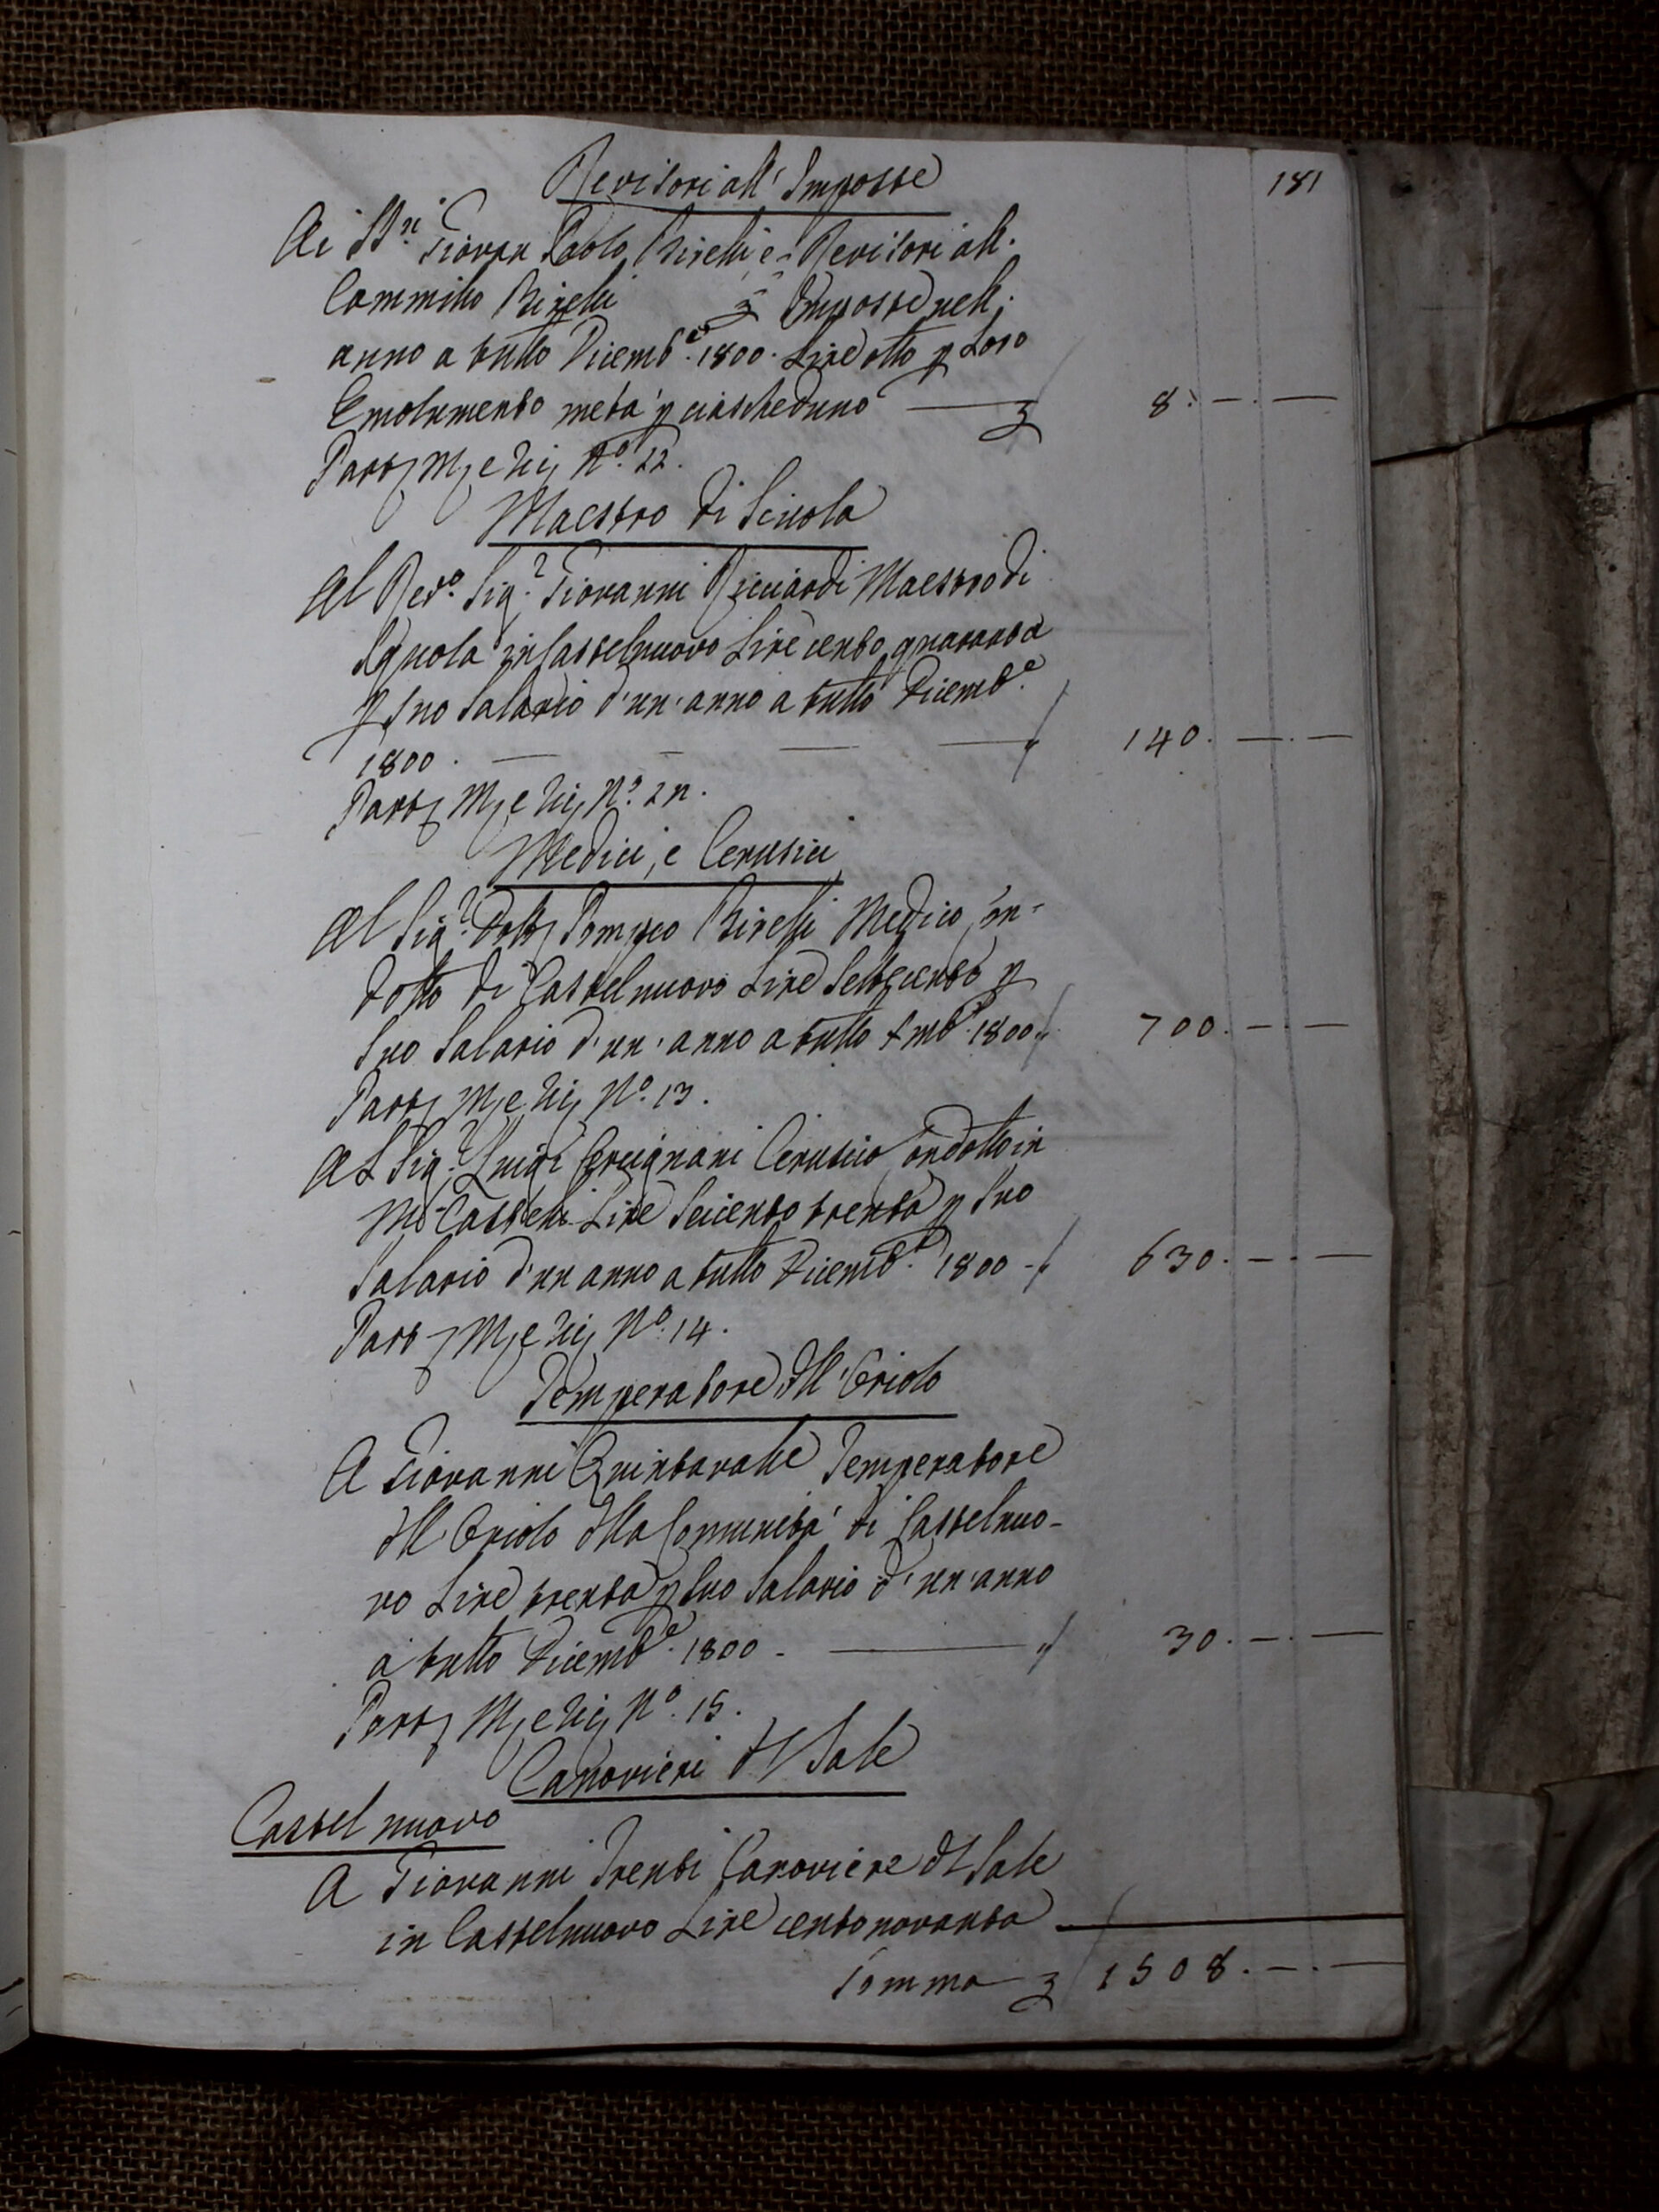 181
Revisori all' Imposte
Ai SS.ri Giovan Paolo Birelli e Revisori all'
Cammillo Birelli Imposte nell'
anno a tutto Dicemb.e 1800. Lire otto p Loro
Emolumento metà p ciascheduno — 8. — . —
Part M e Rij N.o 22.
Maestro di Scuola
Al Rev.o Sig.r Giovanni Ricciardi Maestro di
Squola in Castelnuovo Lire cento quaranta
p suo Salario d'un'anno a tutto Dicemb.e
1800. — — — — 140. — . —
Part M e Rij N.o 2n.
Medici, e Cerusici
Al Sig.r Dott Pompeo Birelli Medico, con-
dotto di Castelnuovo Lire Settecento p
suo Salario d'un'anno a tutto Xmb.e 1800 700. — . —
Part M e Rij N.o 13.
Al Sig.r Luigi Cercignani Cerusico condotto in
M.e Castelli Lire Seicento trenta p suo
Salario d'un anno a tutto Dicemb.e 1800 - 630. — . —
Part M e Rij N.o 14.
Temperatore dll'Oriolo
A Giovanni Quintavalle Temperatore
dll Oriolo dlla Comunità di Castelnuo-
vo Lire trenta p suo Salario d'un'anno
a tutto Dicemb.e 1800 - — 30. — . —
Part M e Rij N.o 15.
Canovieri dl Sale
Castel nuovo
A Giovanni Trenti Canoviere dl Sale
in Castelnuovo Lire centonovanta —
Somma 1508. — . —